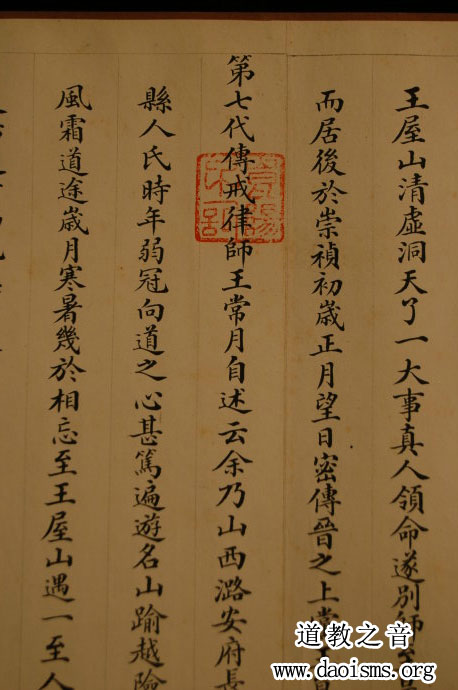 王屋山清虛洞天了一大事真人領命遂別師
而居後於崇禎初歲正月望日密傳晉之上
第七代傳戒律師王常月自述云余乃山西潞安府長
縣人氏時年弱冠向道之心甚篤遍遊名山踰越險
風霜道途歲月寒暑幾於相忘至王屋山遇一至人
道教之音
www.daoisms.org